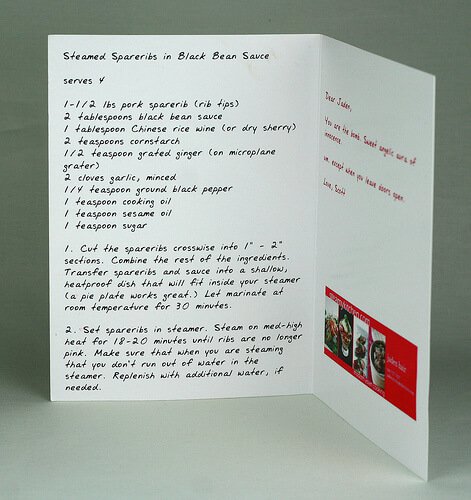 Steamed Spareribs in Black Bean Sauce
serves 4
1-1/2 lbs pork sparerib (rib tips)
2 tablespoons black bean sauce
1 tablespoon Chinese rice wine (or dry sherry)
2 teaspoons cornstarch
1/2 teaspoon grated ginger (on microplane
grater)
2 cloves garlic, minced
1/4 teaspoon ground black pepper
1 teaspoon cooking oil
1 teaspoon sesame oil
1 teaspoon sugar
1. Cut the spareribs crosswise into 1" - 2"
sections. Combine the rest of the ingredients.
Transfer spareribs and sauce into a shallow,
heatproof dish that will fit inside your steamer
(a pie plate works great.) Let marinate at
room temperature for 30 minutes.
2. Set spareribs in steamer. Steam on med-high
heat for 18-20 minutes until ribs are no longer
pink. Make sure that when you are steaming
that you don't run out of water in the
steamer. Replenish with additional water, if
needed.
Dear Jaden,
You are the bomb. Sweet angelic aura of
innocence.
um, except when you leave doors open.
Love, Scott